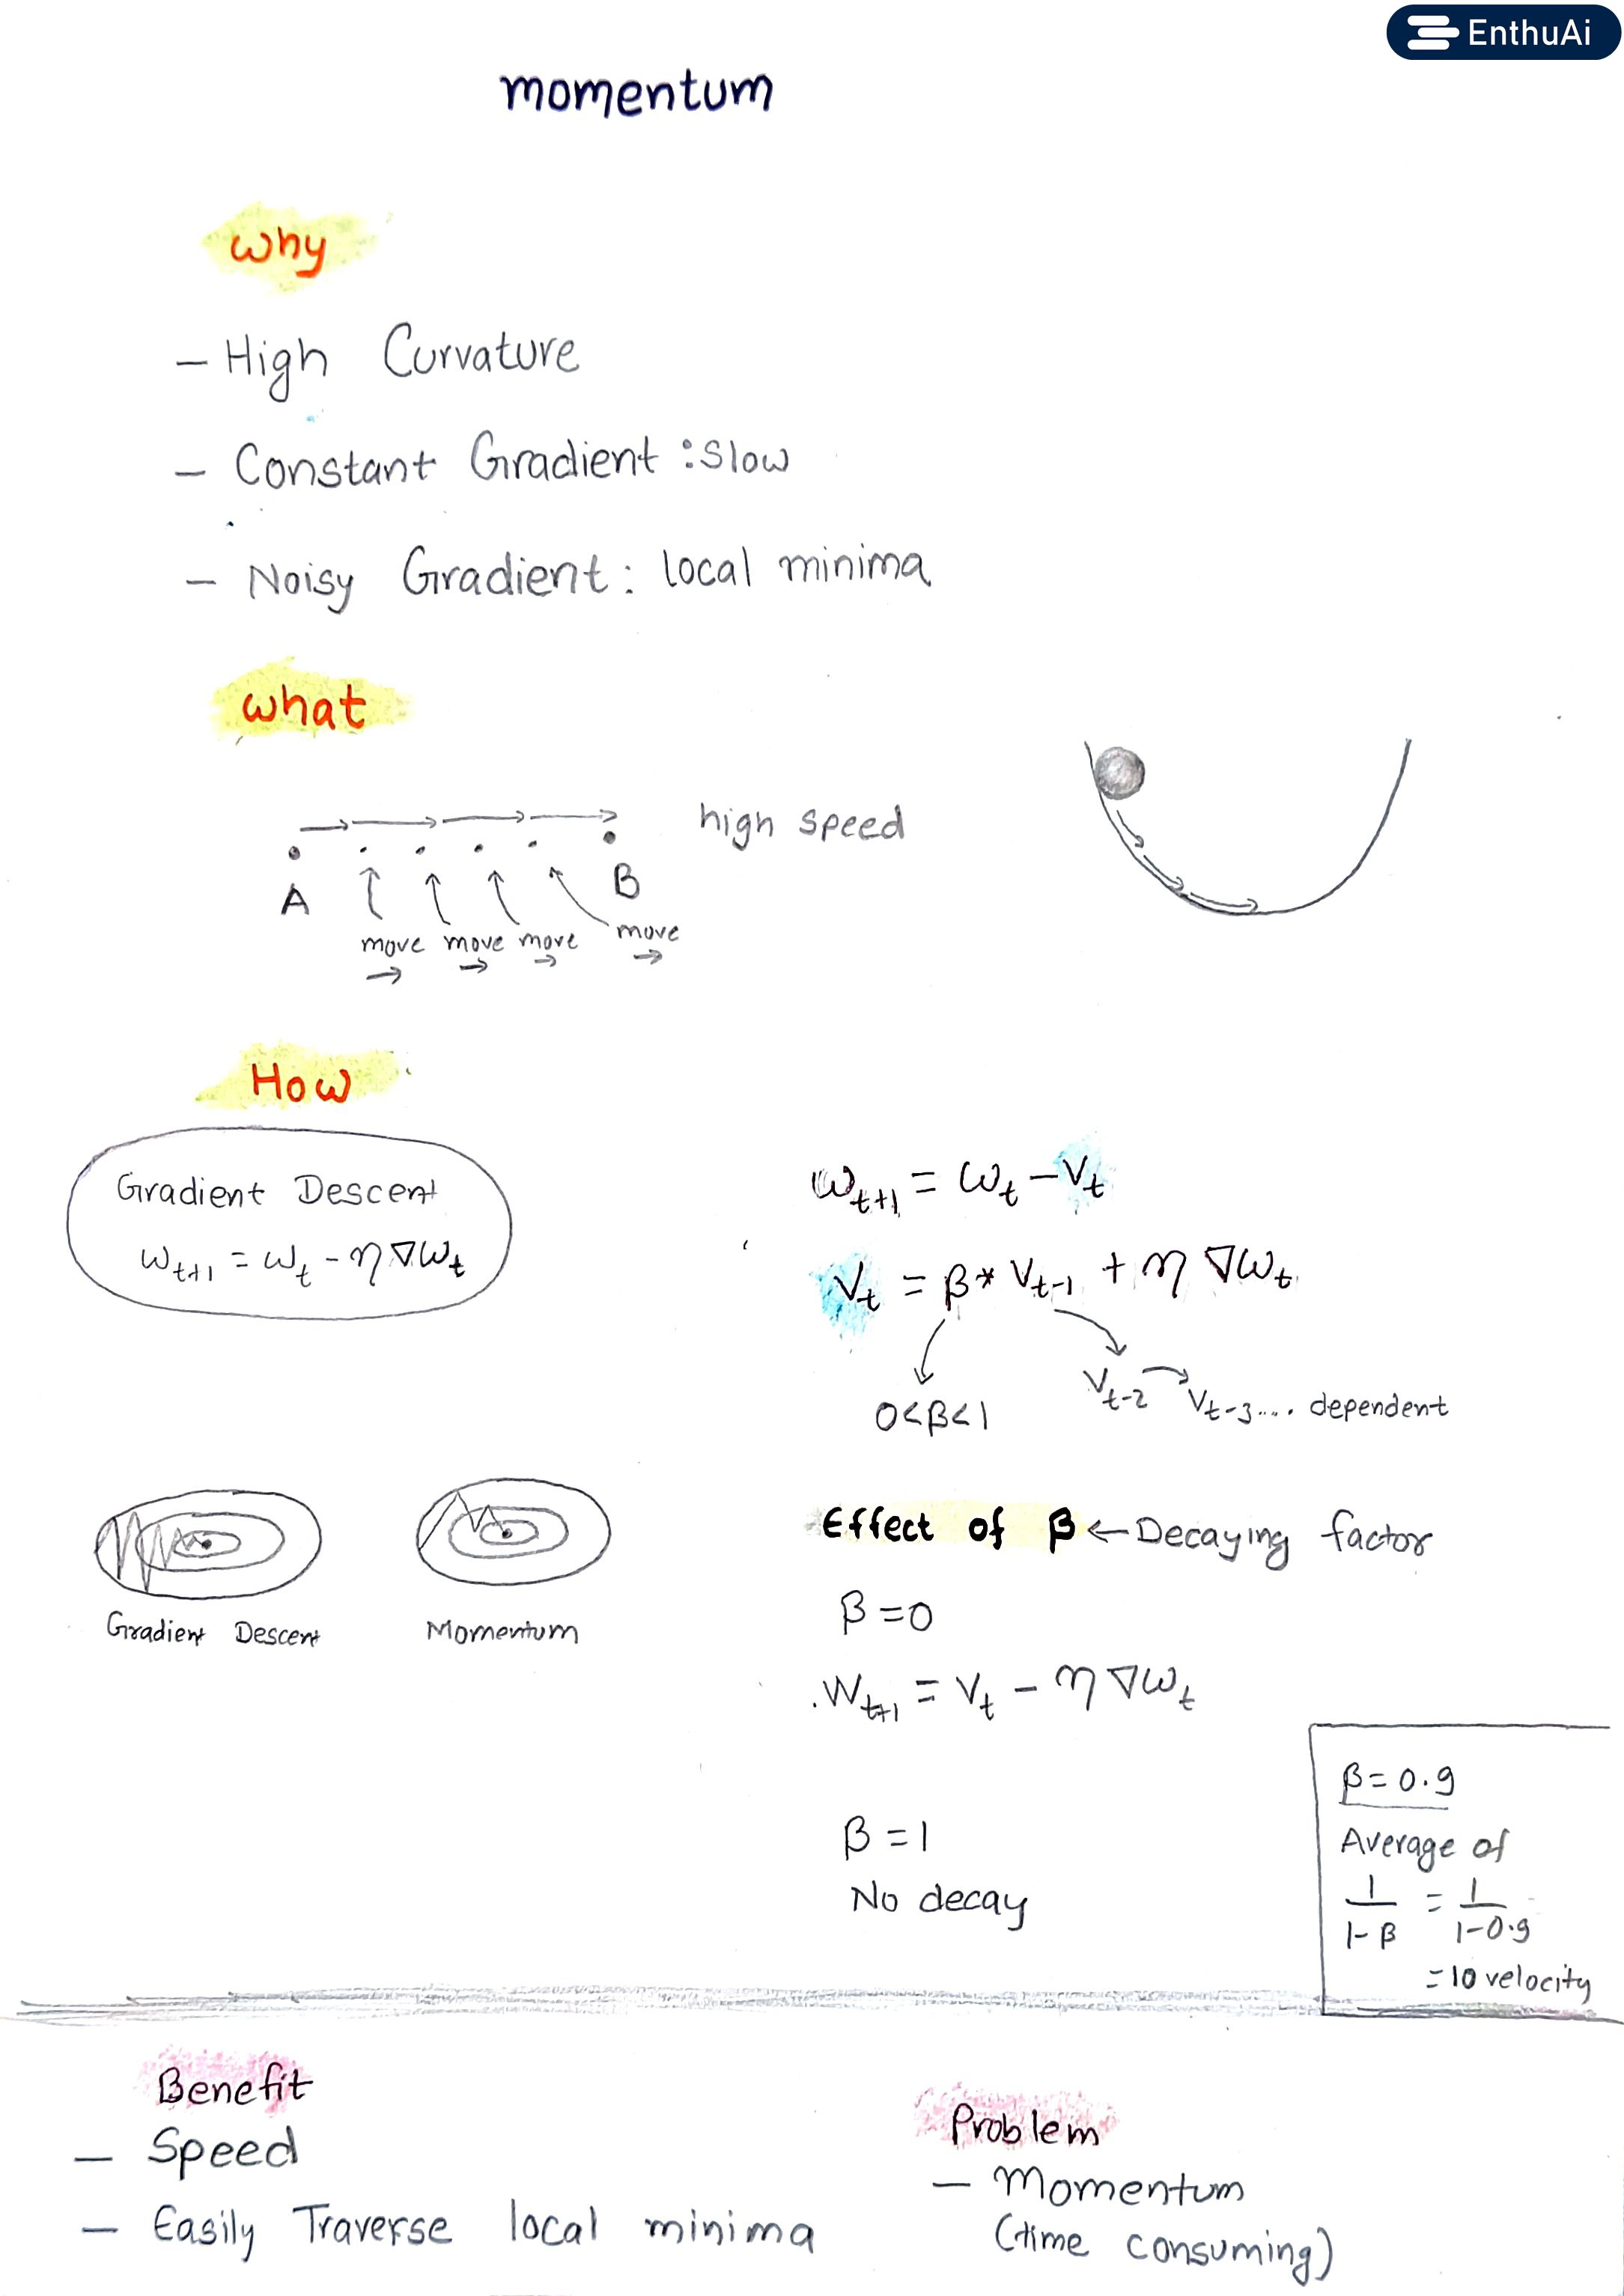 EnthuAi
momentum
Why
- High Curvature
- Constant Gradient : Slow
- Noisy Gradient : local minima
what
high speed
A
B
move move move move
How
Gradient Descent
ω_{t+1} = ω_t - η∇ω_t
ω_{t+1} = ω_t - V_t
V_t = β * V_{t-1} + η∇ω_t
0<β<1
V_{t-2} V_{t-3}.... dependent
Gradient Descent
Momentum
Effect of β ← Decaying factor
β = 0
W_{t+1} = V_t - η∇ω_t
β = 1
No decay
β = 0.9
Average of
1/(1-β) = 1/(1-0.9)
= 10 velocity
Benefit
- Speed
- Easily Traverse local minima
Problem
- Momentum
(time consuming)